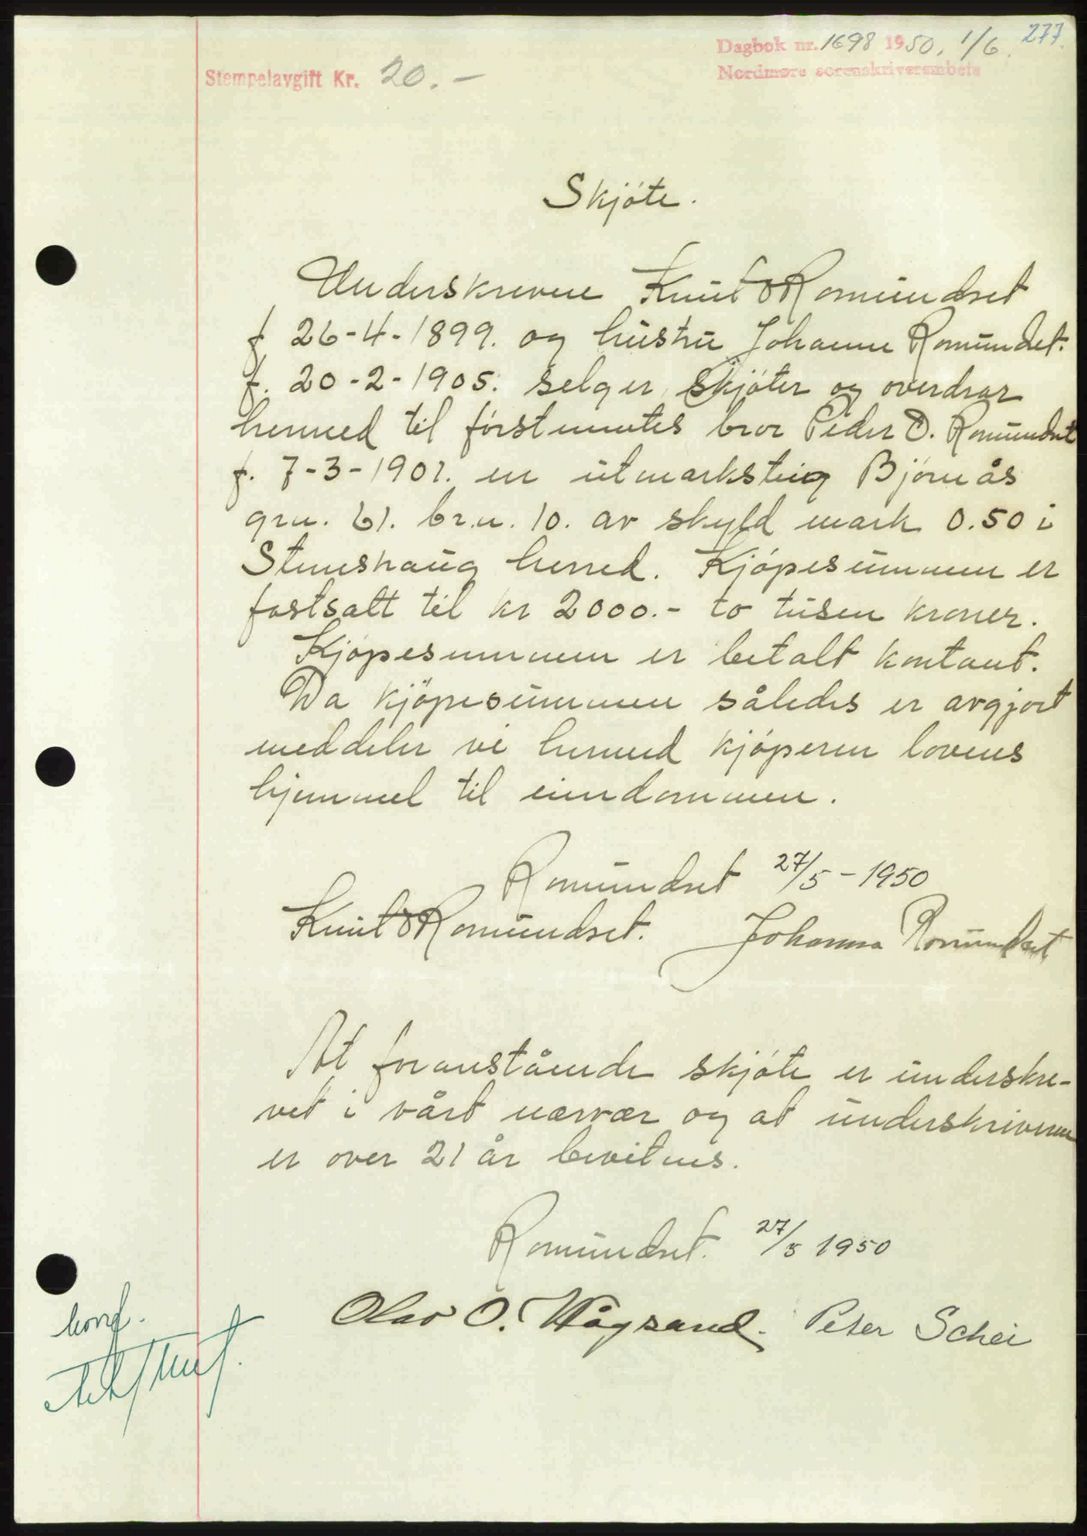 277.
Dagbok nr. 1698 1950. 1/6.
Nordmøre sorenskriverembete
Stempelavgift Kr. 20.-
Skjöte.
Underskrevne Knut O Romundset
f 26-4-1899. og hustru Johanne Romundset.
f. 20-2-1905. selger, skjöter og overdrar
hermed til förstnevntes bror Peder O. Romundset
f. 7-3-1901. en utmarksteig Björnås
gnr. 61. br.n. 10. av skyld mark 0.50 i
Stemshaug herred. Kjöpesummen er
fastsatt til kr 2000.- to tusen kroner.
Kjöpesummen er betalt kontant.
Da kjöpesummen således er avgjort
meddeler vi hermed kjöperen lovens
hjemmel til eiendommen.
Romundset 27/5-1950
Knut O Romundset. Johanna Romundset
At foranstående skjöte er underskre-
vet i vårt nærvær og at underskriverne
er over 21 år bevitnes.
Romundset. 27/5 1950
Olav O. Vågsand. Peter Schei
konf.